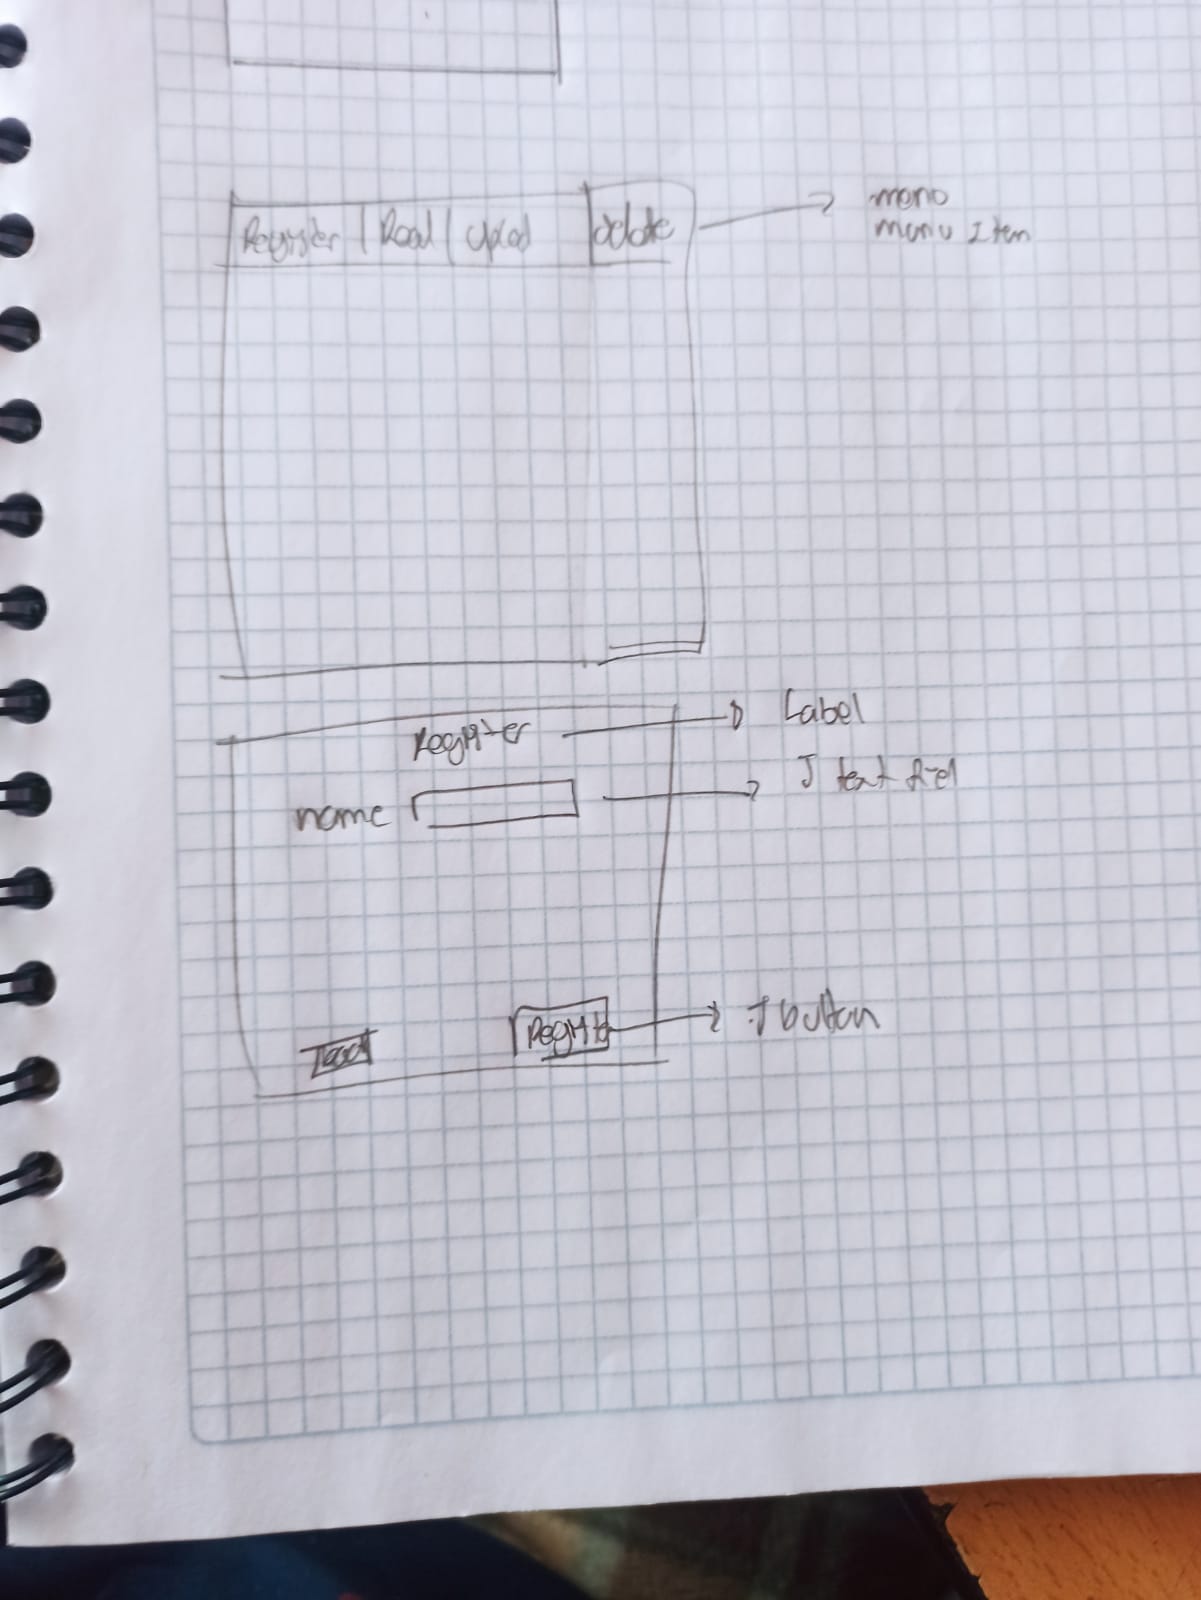 Register | Read | Upload delete
meno
menu Item
Register
Label
name
J text fiel
Register
J button